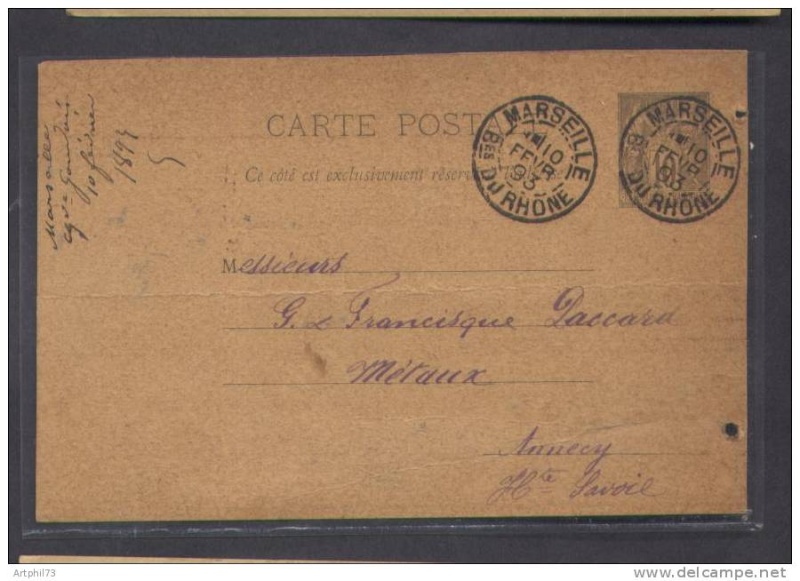 Marseille
10 février
1893
CARTE POSTA
Ce côté est exclusivement réservé
MARSEILLE
10
FEVR
93
Bes DU RHÔNE
MARSEILLE
10
FEVR
93
DU RHÔNE
Messieurs
G. & Francisque Paccard
Métaux
Annecy
Hte Savoie
Artphil73
delcampe.net